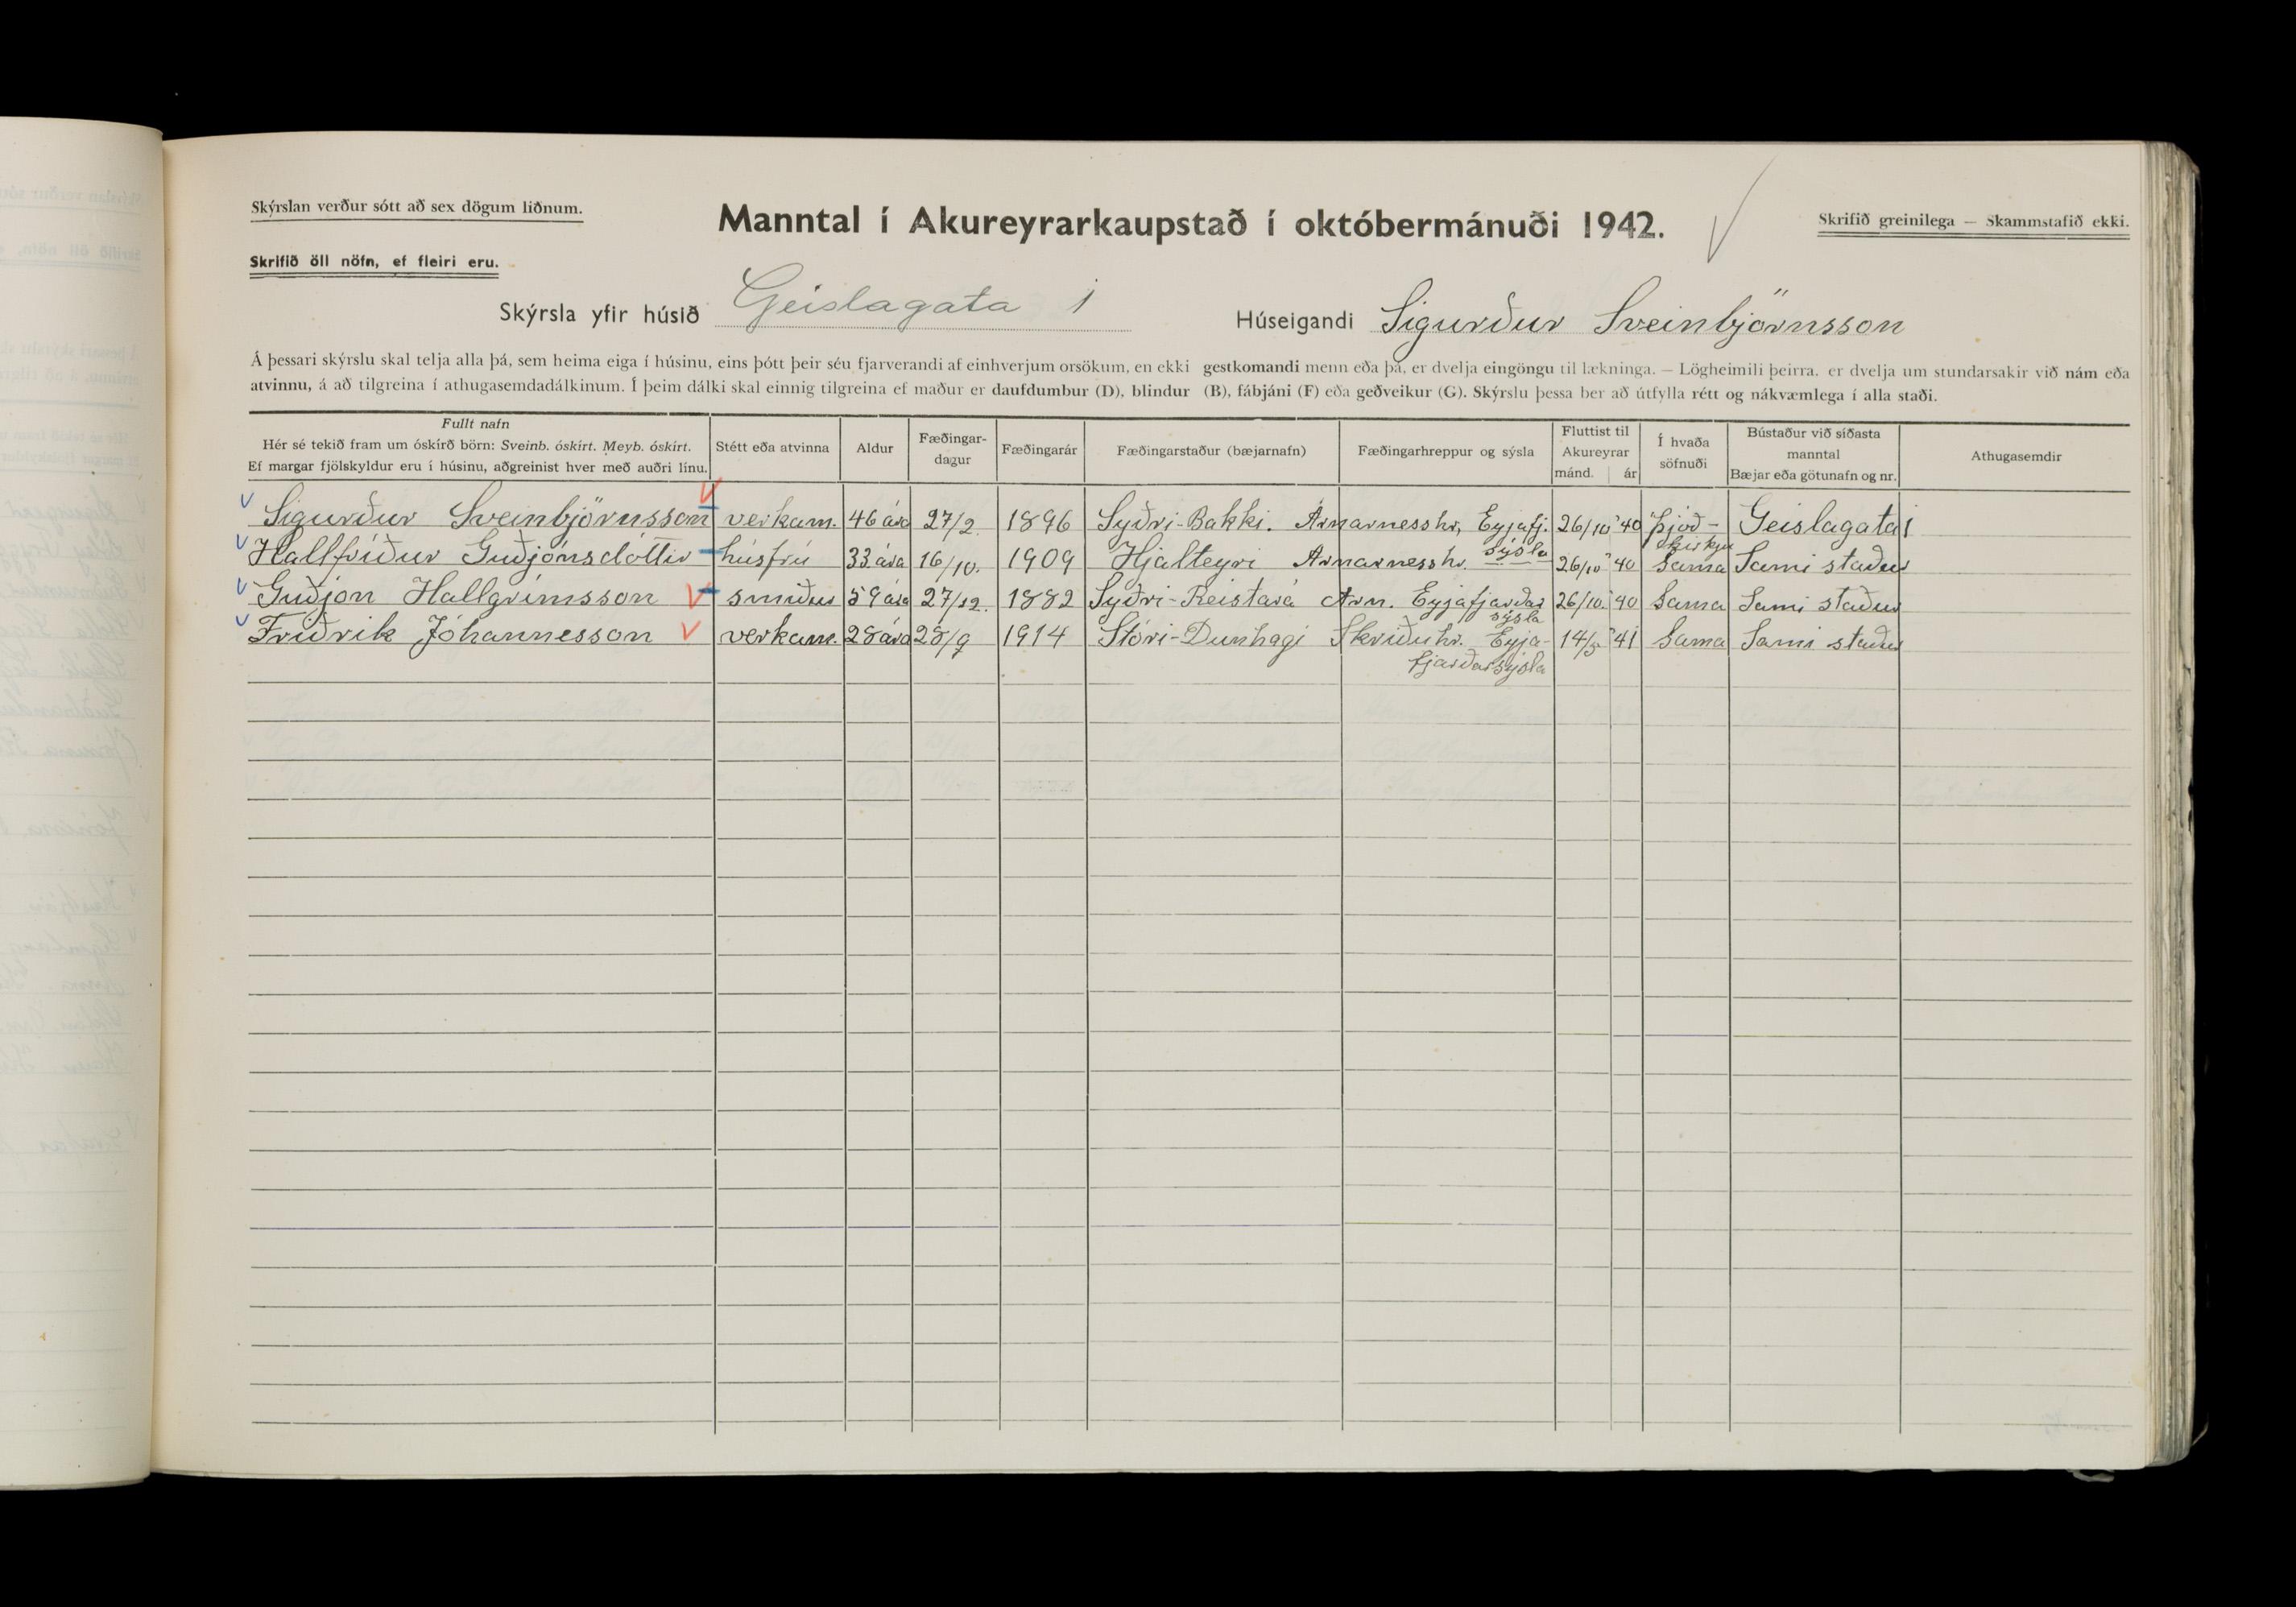 Skýrslan verður sótt að sex dögum liðnum.
Manntal í Akureyrarkaupstað í októbermánuði 1942.
Skrifið greinilega — Skammstafið ekki.
Skrifið öll nöfn, ef fleiri eru.
Skýrsla yfir húsið Geislagata 1
Húseigandi Sigurður Sveinbjörnsson
Á þessari skýrslu skal telja alla þá, sem heima eiga í húsinu, eins þótt þeir séu fjarverandi af einhverjum orsökum, en ekki gestkomandi menn eða þá, er dvelja eingöngu til lækninga. — Lögheimili þeirra, er dvelja um stundarsakir við nám eða
atvinnu, á að tilgreina í athugasemdadálkinum. Í þeim dálki skal einnig tilgreina ef maður er daufdumbur (D), blindur (B), fábjáni (F) eða geðveikur (G). Skýrslu þessa ber að útfylla rétt og nákvæmlega í alla staði.
Fullt nafn
Hér sé tekið fram um óskírð börn: Sveinb. óskírt. Meyb. óskírt.
Ef margar fjölskyldur eru í húsinu, aðgreinist hver með auðri línu.
Stétt eða atvinna
Aldur
Fæðingar-
dagur
Fæðingarár
Fæðingarstaður (bæjarnafn)
Fæðingarhreppur og sýsla
Fluttist til
Akureyrar
mánd. ár
Í hvaða
söfnuði
Bústaður við síðasta
manntal
Bæjar eða götunafn og nr.
Athugasemdir
Sigurður Sveinbjörnsson verkam. 46 ára 27/2. 1896 Syðri-Bakki. Arnarnesshr, Eyjafj. 26/10 '40 Þjóð- Geislagata 1
sýsla kirkju
Hallfríður Guðjónsdóttir húsfrú 33 ára 16/10. 1909 Hjalteyri Arnarnesshr. 26/10 '40 Sama Sami staður
Guðjón Hallgrímsson smiður 59 ára 27/12. 1882 Syðri-Reistará Arn. Eyjafjarðar 26/10. '40 Sama Sami staður
sýsla
Friðrik Jóhannesson verkam. 28 ára 28/9 1914 Stóri-Dunhagi Skriðuhr. Eyja- 14/5 '41 Sama Sami staður
fjarðarsýsla